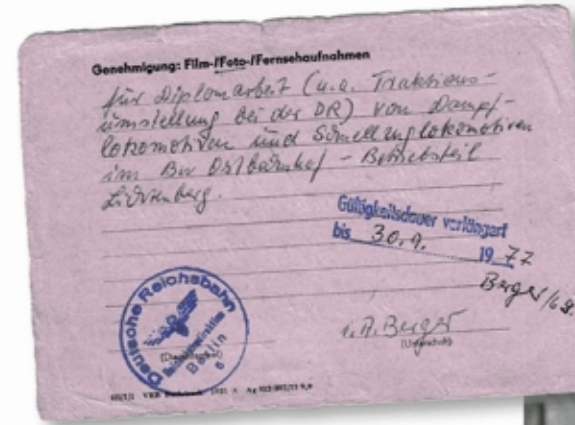 Genehmigung: Film-/Foto-/Fernsehaufnahmen
für Diplomarbeit (u.a. Traktions-
umstellung bei der DR) von Dampf-
lokomotiven und Schnellzuglokomotiven
im Bw Ostbahnhof - Betriebsteil
Lichtenberg.
Gültigkeitsdauer verlängert
bis 30.9. 1977
Berger
i.A. Berger
(Unterschrift)
Deutsche Reichsbahn
Berlin
6
(Dienststempel)